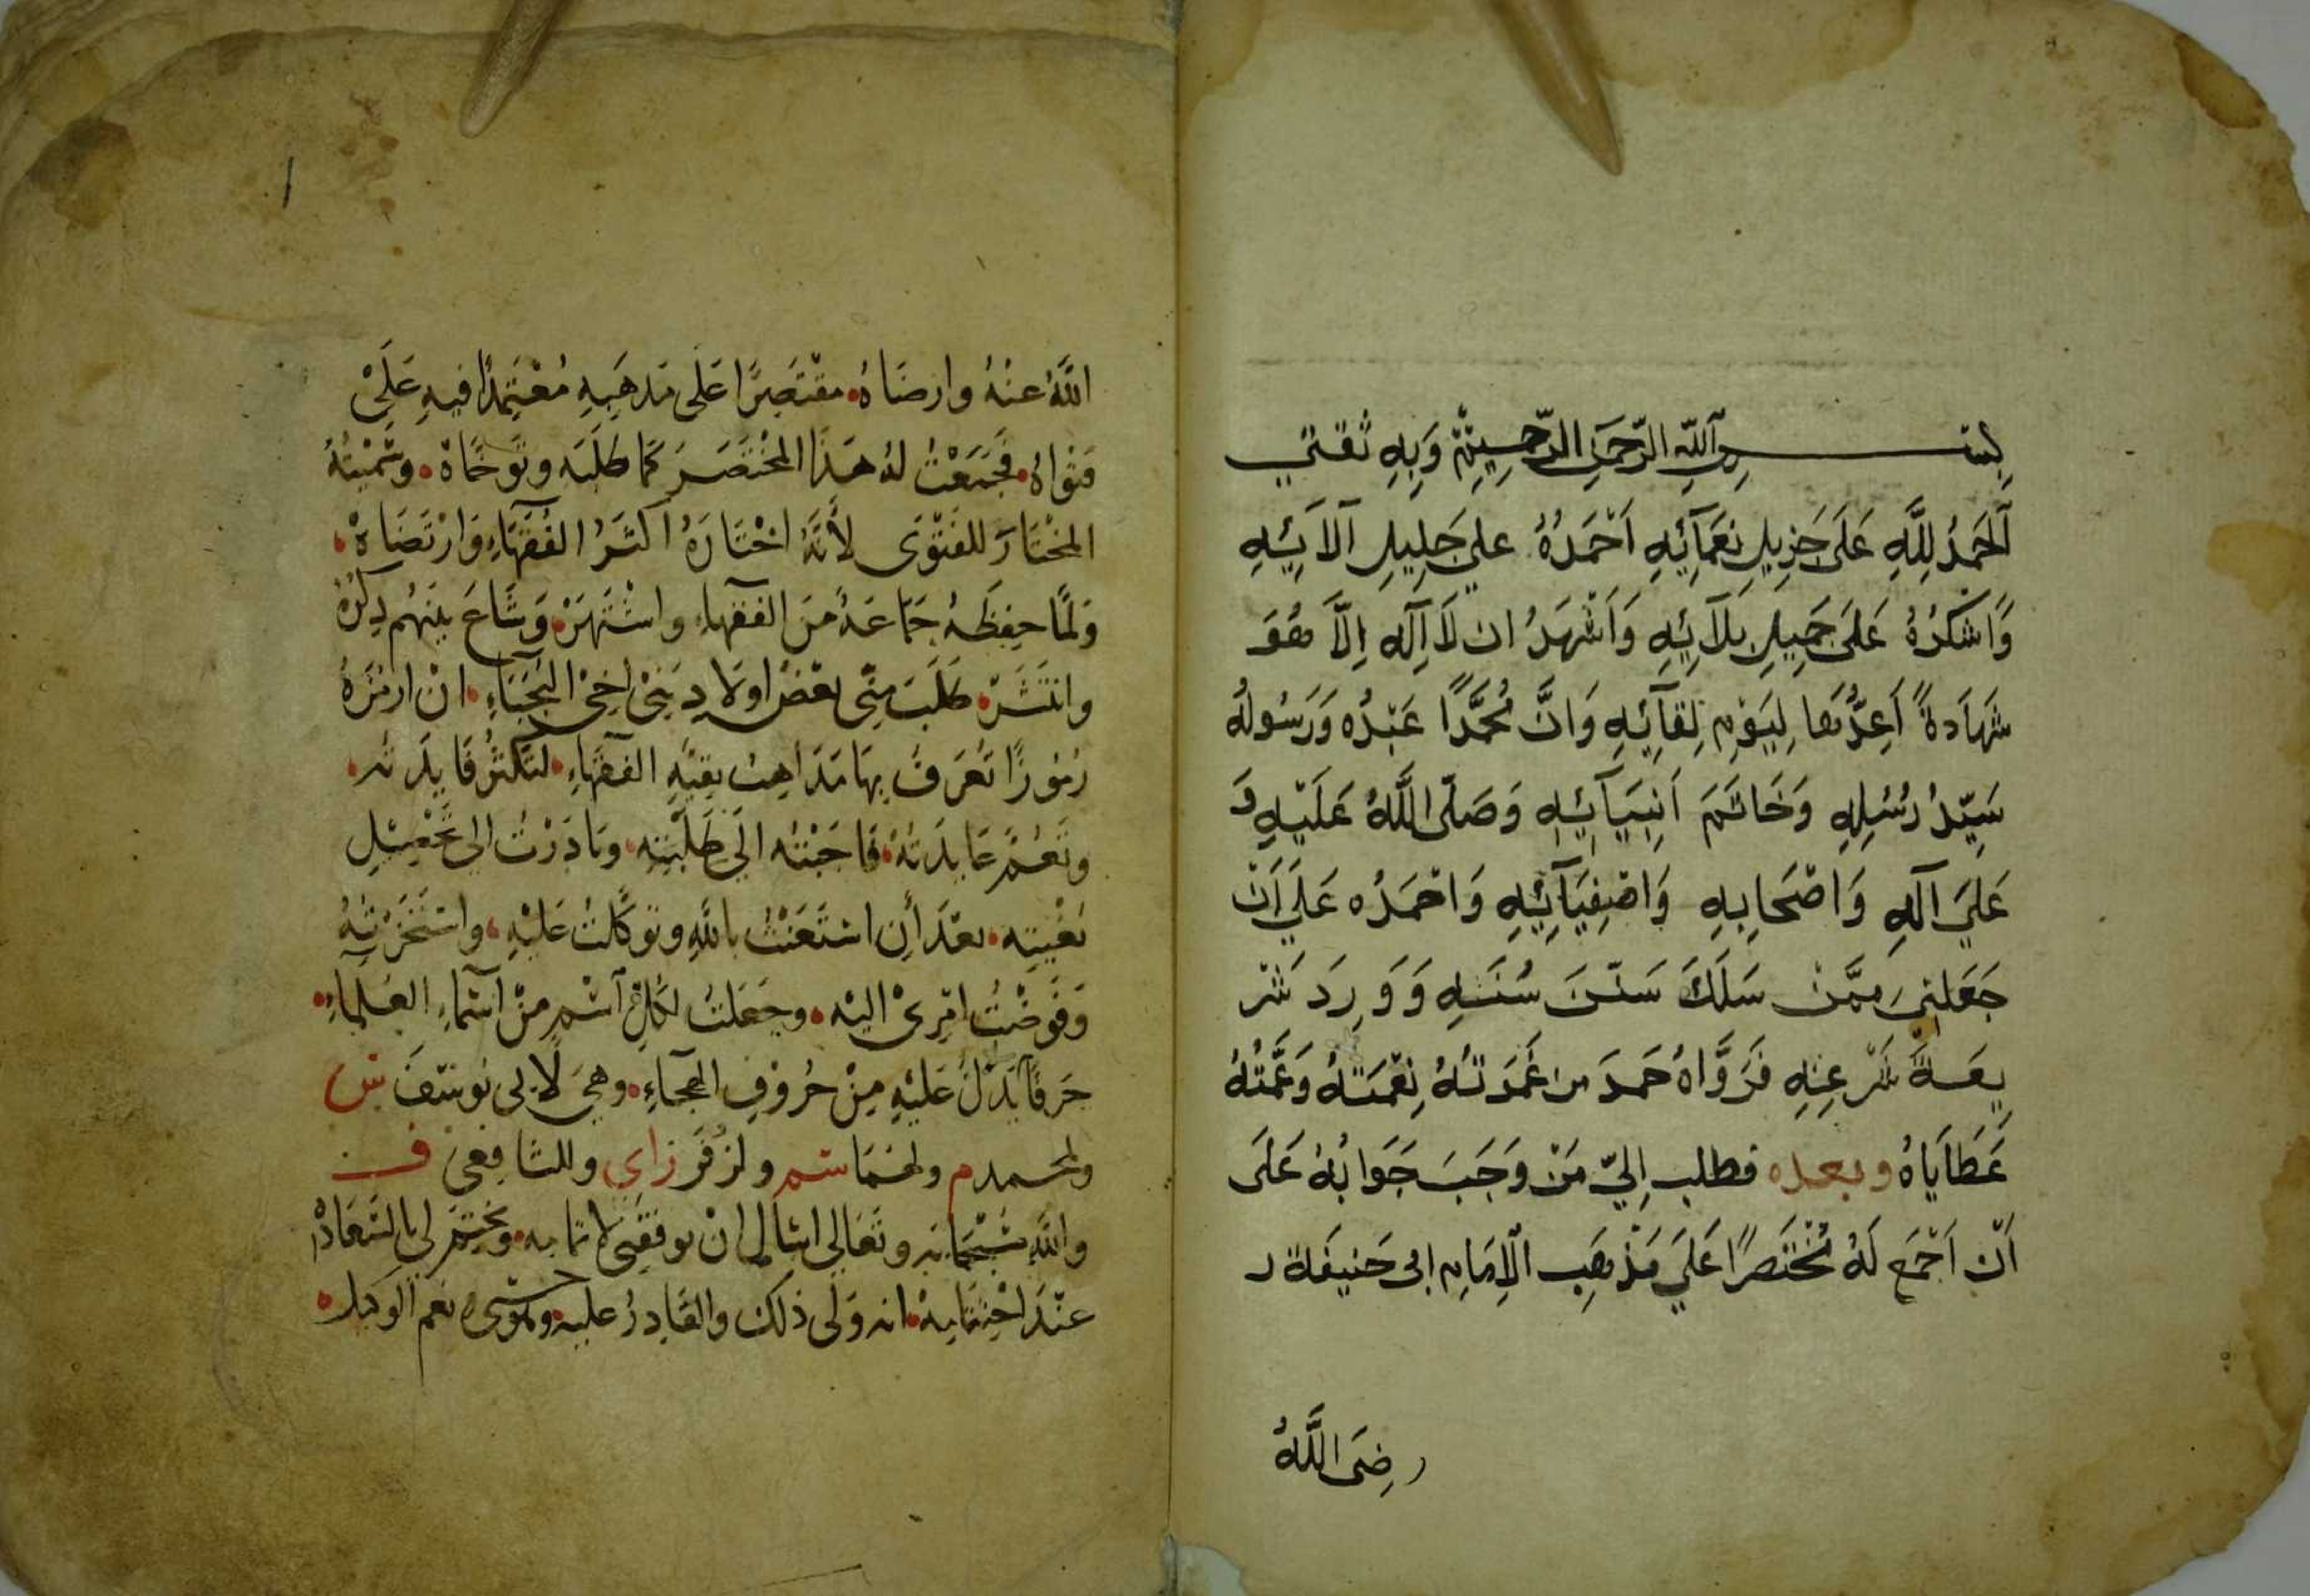 بسم الله الرحمن الرحيم وَبِهِ ثقتي
اَلحَمدُ لِلَّهِ عَلَى جَزِيلِ نِعَمَآئِهِ اَحْمَدُهُ على جَلِيلِ آلآئِهِ
وَاشكُرُهُ عَلَى جَمِيلِ بَلآئِهِ وَاَشْهَدُ ان لَا اِلَه اِلَّا هُوَ
شَهَادةً اَعِدُّهَا لِيَوْمِ لِقآئِهِ وَانَّ مُحَمَّدًا عَبْدُه وَرَسُولُهُ
سَيِّدُ رُسُلِهِ وَخَاتَمَ اَنبِيَآئِهِ وَصَلَّى اللَّهُ عَلَيْهِ وَ
عَلَى آلَهِ وَاصْحَابِهِ وَاصْفِيَآئِهِ وَاحْمَدُه عَلَى اَنْ
جَعَلَنِى مِمَّنْ سَلَكَ سَنَنَ سُنَنِهِ وَوَرِدَ شَر
يعَةَ شَرْعِهِ فَرَوَّاهُ حَمدَ من غَمَرَتهُ نِعْمَتَهُ وَعَمَّتْهُ
عَطَايَاهُ وبعده فطلب اِلىّ مَنْ وَجَبَ جَوَابُهُ عَلَى
اَنْ اَجْمَع لَهُ مُخْتَصَرًا عَلَى مَذْهَبِ الْاِمَامِ ابى حَنيفَة ر
رضَى اللَّهُ
اللَّهُ عنْهُ وارضَاهُ مقْتَصِرًا عَلَى مَذهَبِهِ مُعْتَمِدًا فيهِ عَلَى
فتْوَاهُ فَجَمَعْتُ لهُ هَذَا المُخْتَصَرَ كمَا طَلَبَه وتَوَخَّاهْ وسَمَّيْتُهُ
المخْتَارَ للفَتْوَى لأَنَّهُ اخْتَارَهُ اكثَرُ الفُقَهَاءِ وَارْتَضَاهْ
وَلمَّا حفِظَهُ جَمَاعَةٌ مِّنَ الفقهاءِ واشْتَهَرْ وَشَاعَ بَيْنَهُم ذِكْرُهُ
وانتَشَرْ طَلَبَ مِنّى بعْضُ اولَادِ بَنِى اخِى النُّجَبَاءِ انْ ارمُزَهُ
رُمُوزًا تُعْرَفُ بِهَا مَذَاهِبُ بقِيَّةِ الفقَهَاءِ لتَكْثُرَ فَايدَته
وتَعُمَّ عَايدَتُهْ فَاجَبْتُه الَى طَلَبَتِه وبَادَرْتُ الى تَحْصِيْلِ
بُغْيَتِه بعْدَ أنِ اسْتَعَنْتُ باللَّهِ وتَوَكَّلتُ عَلَيْهِ واسْتَخَرْتُهُ
وَفَوَّضْتُ امْرِىْ اليْه وجَعَلتُ لكلِّ اسْمٍ مِنْ اسْمَاءِ العُلمَاءِ
حَرفًا يَدُلُّ عَلَيْهِ مِنْ حُرُوْفِ الهجَاءِ وهىَ لابى يُوسُفَ س
ولمحمد م ولهمَا سم ولزُفَرَ زاى وللشافِعى ف
واللَّه سُبْحَانه وتَعَالى اسْال انْ يوفقَنِى لاتمامه ويَخْتِمَ لى بالسَّعَادَه
عنْدَ اخْتِتَامِهْ انه وَلى ذلك والقَادِرُ عليه وهو حسبى ونعم الوكيل